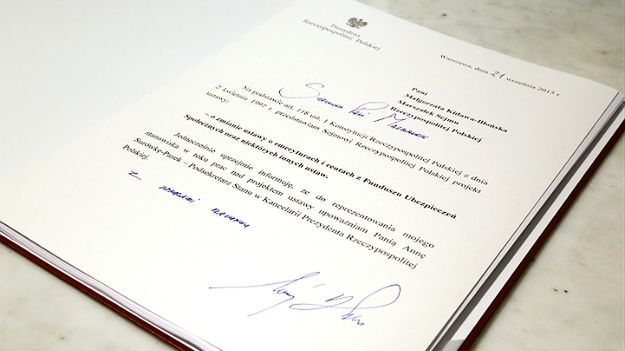 Prezydent
Rzeczypospolitej Polskiej
Warszawa, dnia 21 września 2015 r.
Pani
Małgorzata Kidawa-Błońska
Marszałek Sejmu
Rzeczypospolitej Polskiej
Szanowna Pani Marszałek
Na podstawie art. 118 ust. 1 Konstytucji Rzeczypospolitej Polskiej z dnia
2 kwietnia 1997 r. przedstawiam Sejmowi Rzeczypospolitej Polskiej projekt
ustawy:
- o zmianie ustawy o emeryturach i rentach z Funduszu Ubezpieczeń
Społecznych oraz niektórych innych ustaw.
Jednocześnie uprzejmie informuję, że do reprezentowania mojego
stanowiska w toku prac nad projektem ustawy upoważniam Panią Annę
Surówkę-Pasek – Podsekretarz Stanu w Kancelarii Prezydenta Rzeczypospolitej
Polskiej.
Z